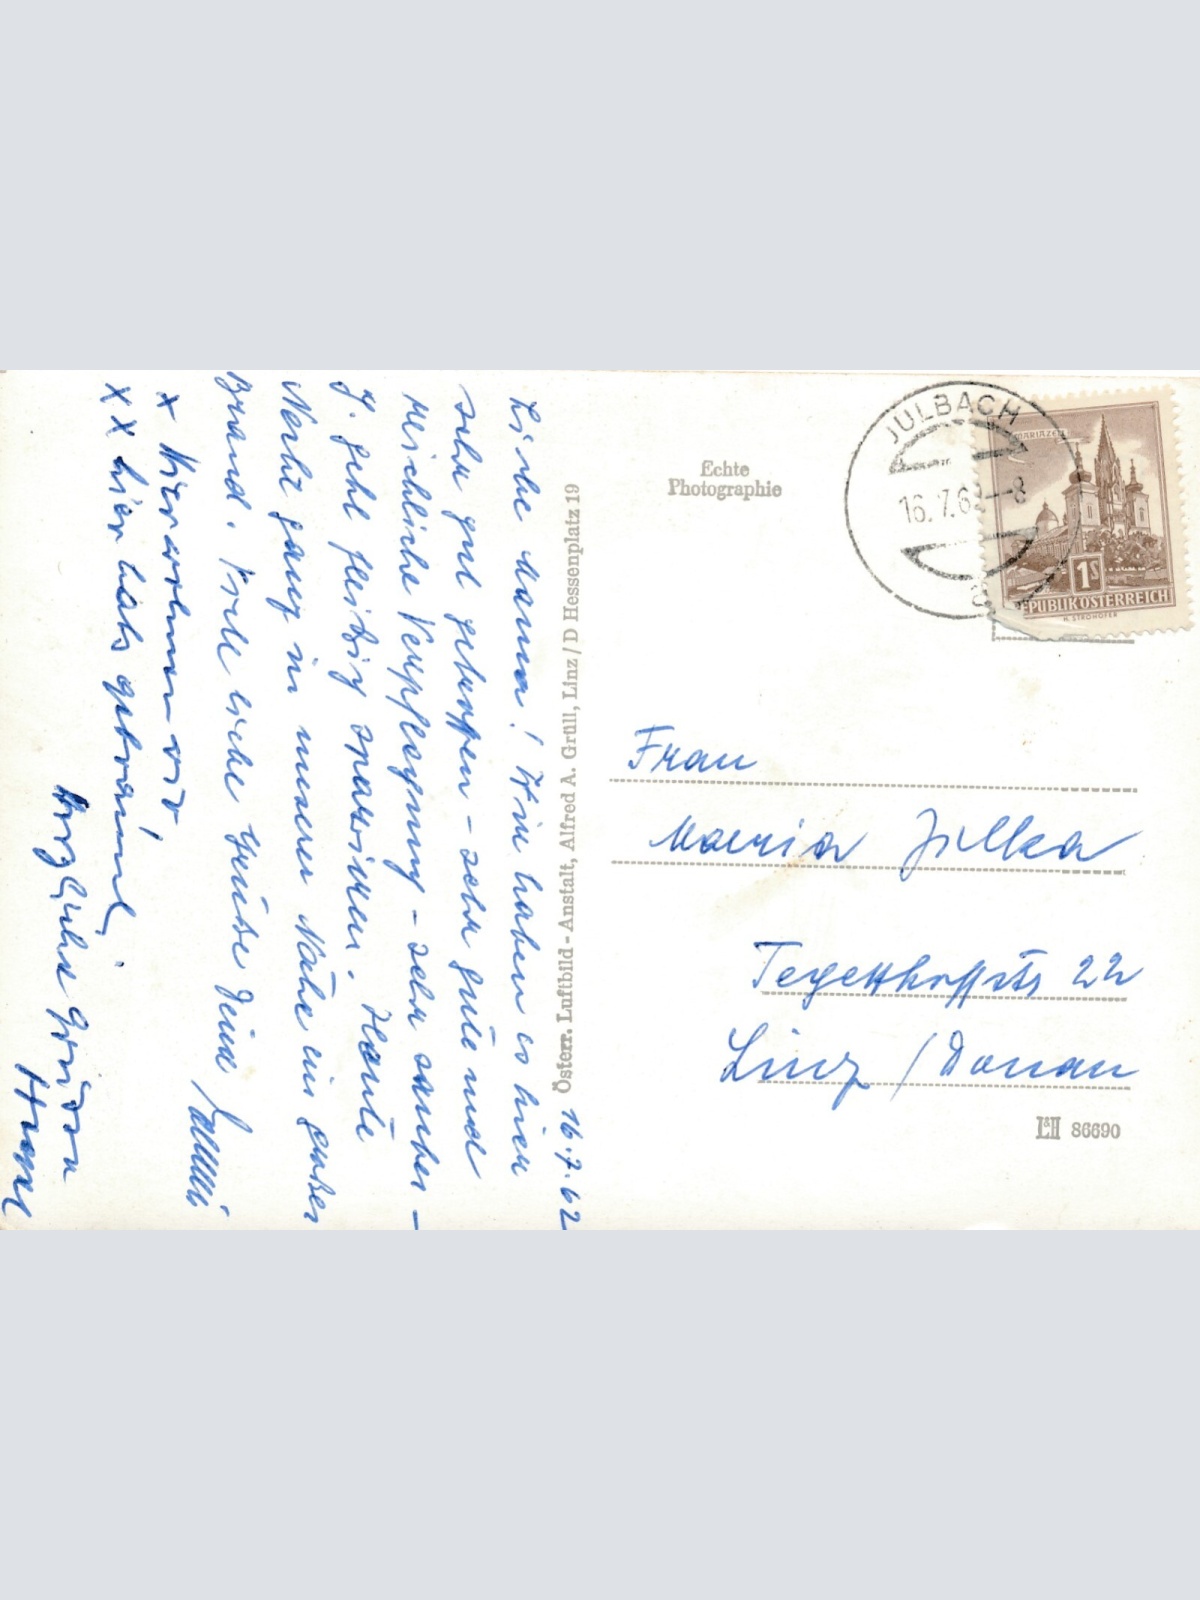 16.7.62
Liebe Mama! Wir haben es hier
sehr gut getroffen - sehr gute und
reichliche Verpflegung - sehr sauber -
J. geht fleißig spazieren. Heute
Nacht ganz in unserer Nähe ein großer
Brand. Viele liebe Grüße Deine
x Hier wohnen wir
XX hier hats gebrannt
Herzliche Grüße
Österr. Luftbild-Anstalt, Alfred A. Grüll, Linz/D Hessenplatz 19
Echte
Photographie
JULBACH
16.7.62-8
MARIAZELL
1S
REPUBLIK ÖSTERREICH
H. STROHOFER
Frau
Maria Jilka
Tegetthoffstr 22
Linz / Donau
L&H 86690